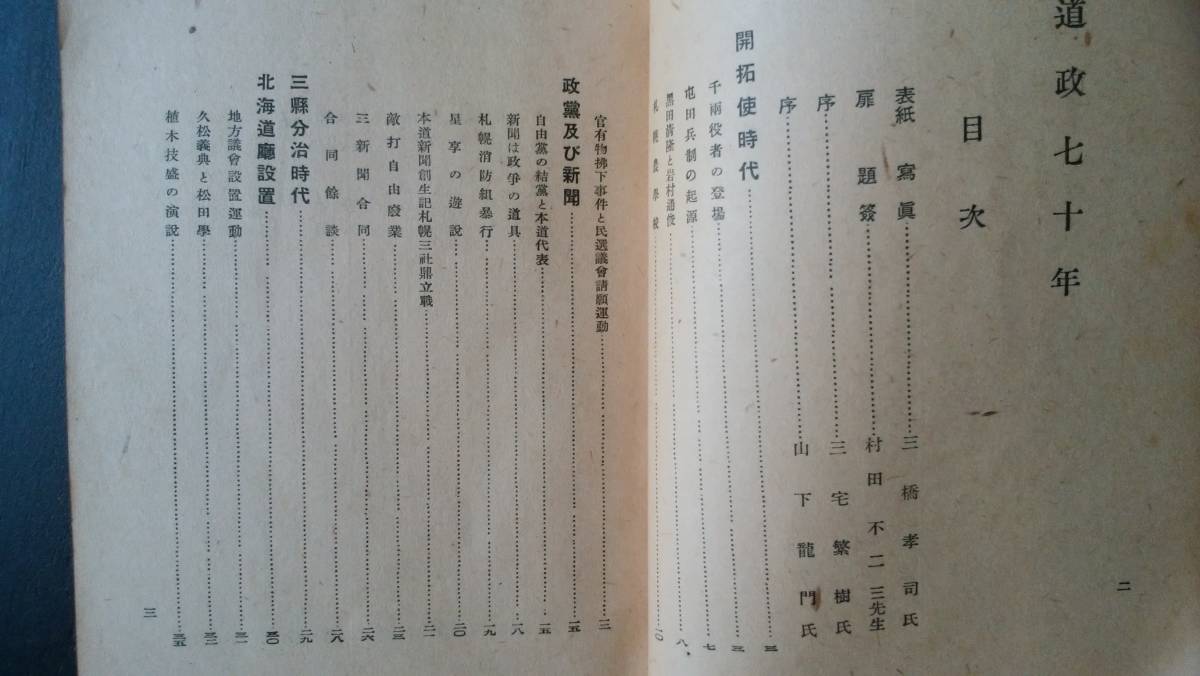 道政七十年
目次
表紙寫眞……三橋孝司氏
扉題簽……村田不二三先生
序……三宅繁樹氏
序……山下龍門氏
開拓使時代……三
千兩役者の登場……三
屯田兵制の起源……七
黒田淸隆と岩村通俊……八
札幌農學校……一〇
二
官有物拂下事件と民選議會請願運動……一二
政黨及び新聞……一五
自由黨の結黨と本道代表……一五
新聞は政爭の道具……一八
札幌消防組暴行……一九
星亨の遊說……二〇
本道新聞創生記札幌三社鼎立戰……二一
敵打自由廢業……二三
三新聞合同……二六
合同餘談……二八
三縣分治時代……二九
北海道廳設置……三〇
地方議會設置運動……三一
久松義典と松田學……三二
植木技盛の演說……三五
三